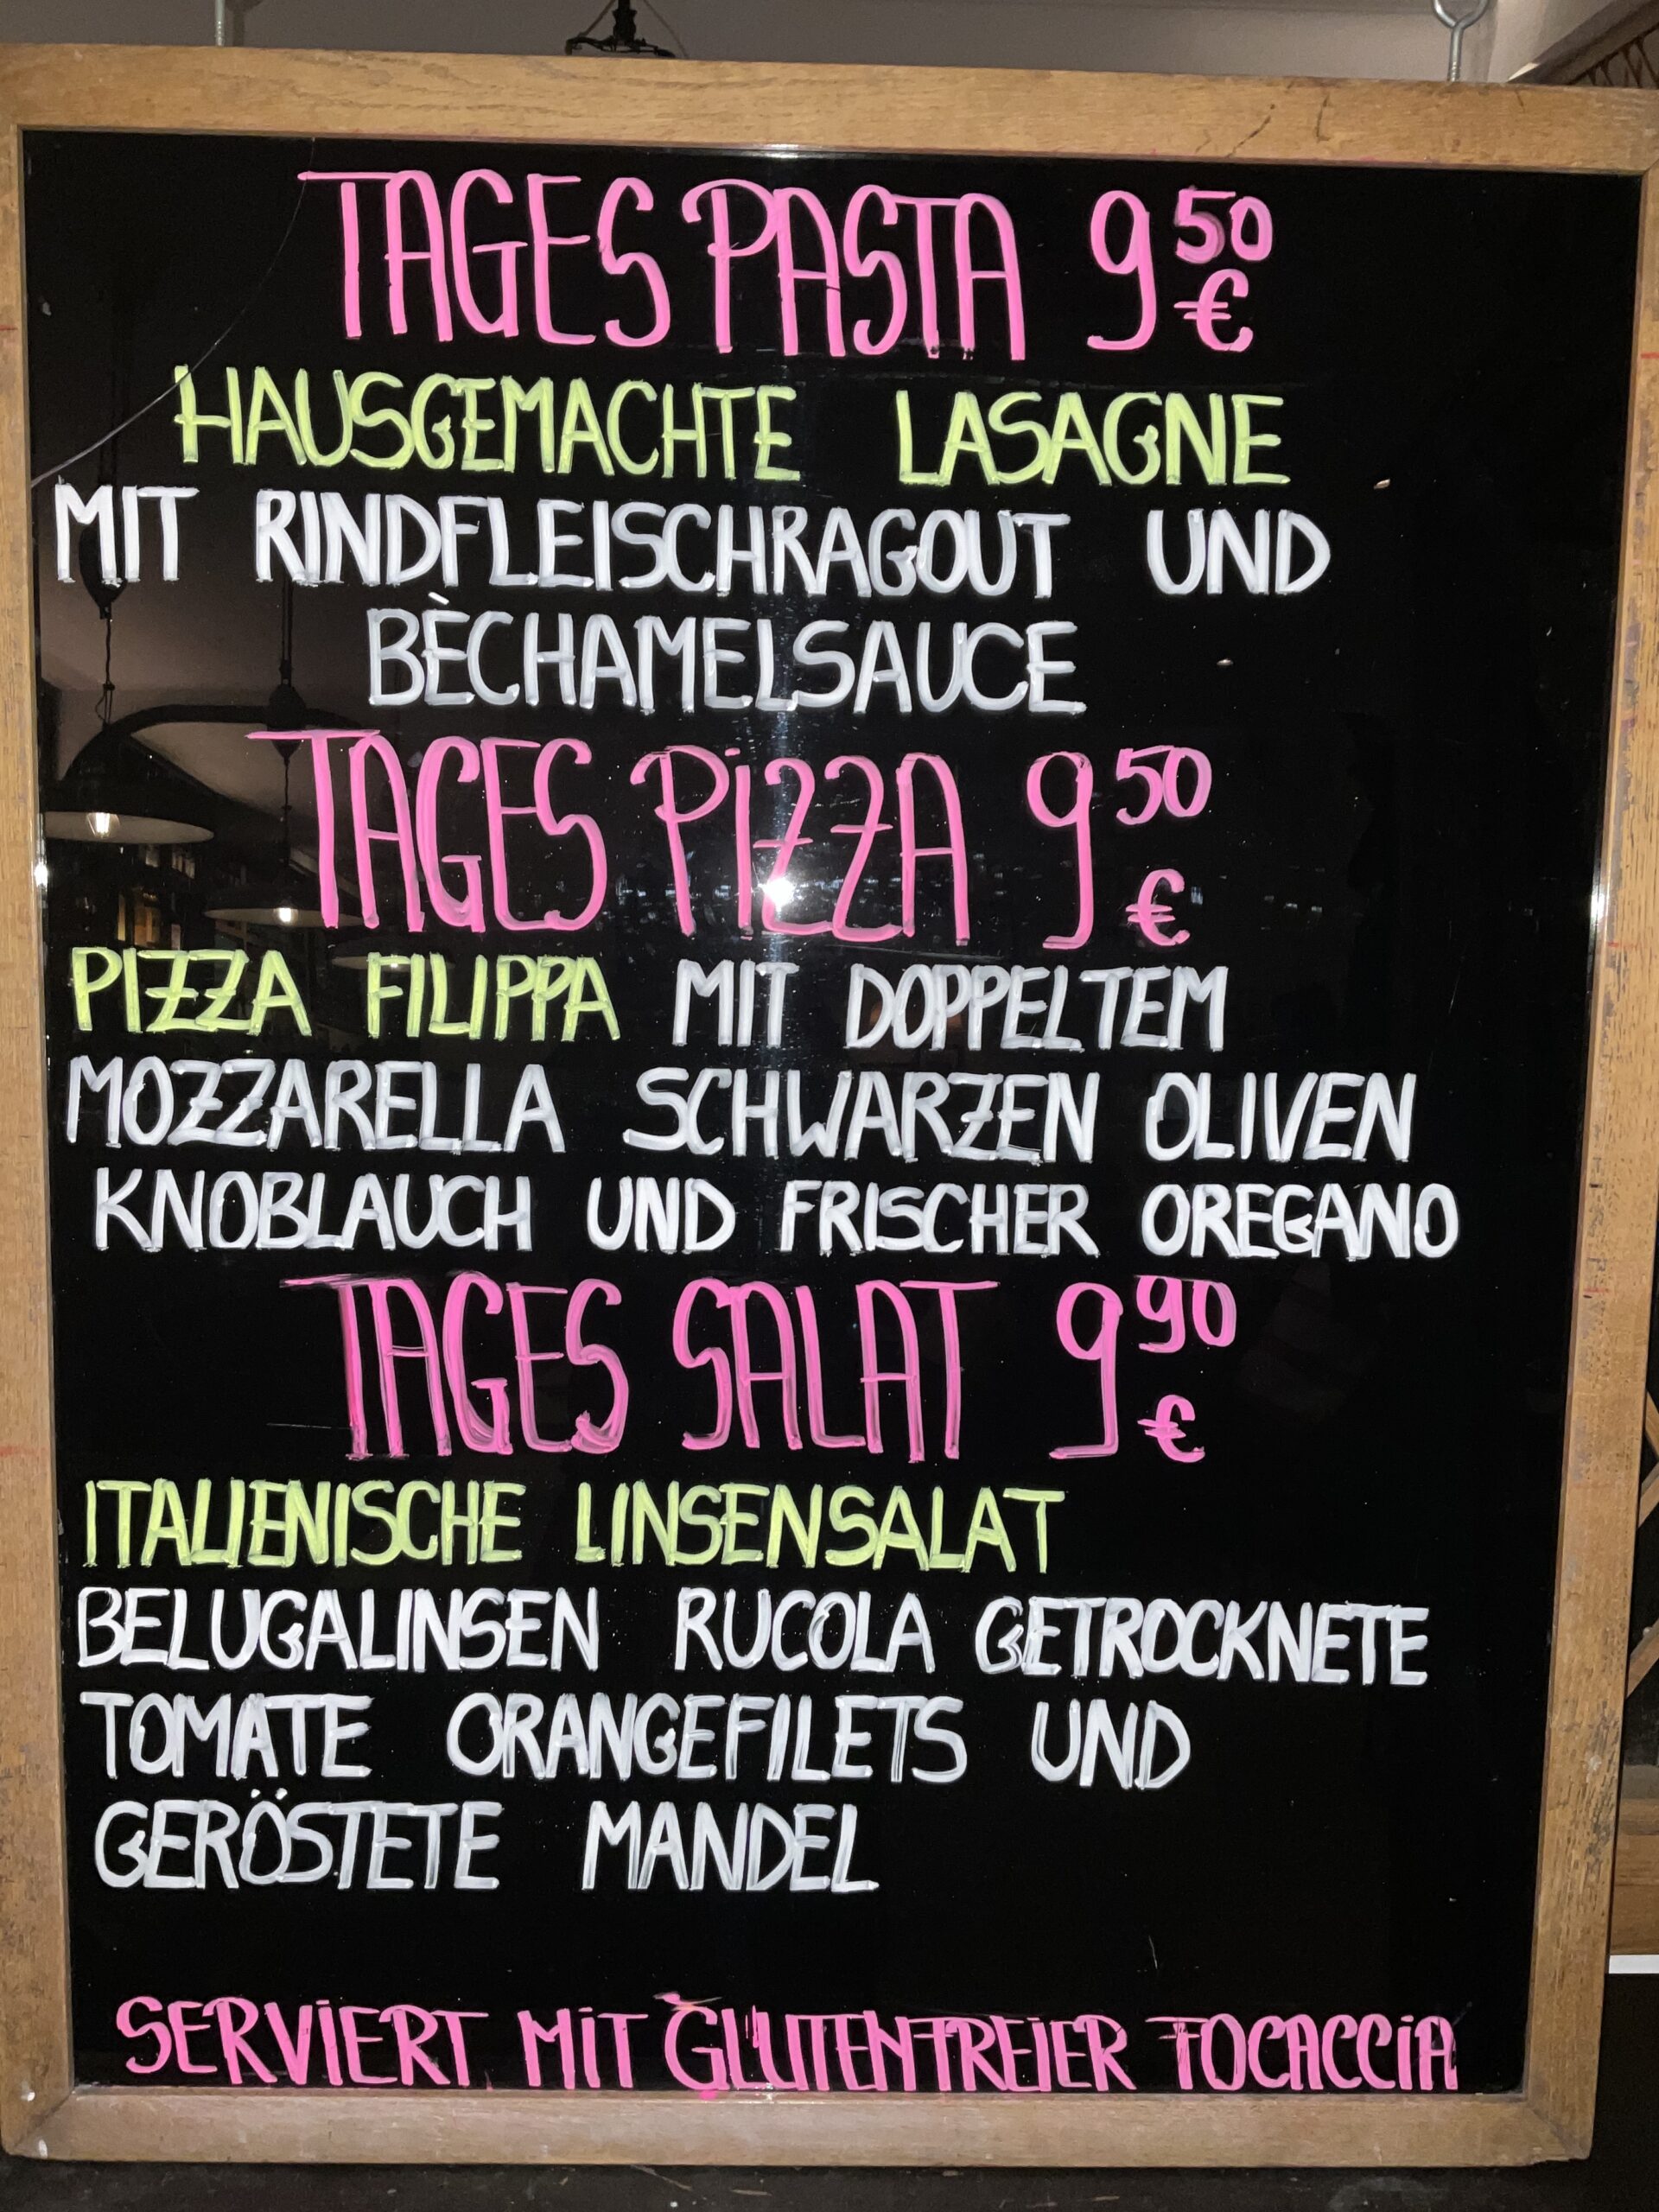 TAGES PASTA 9 50 €
HAUSGEMACHTE LASAGNE
MIT RINDFLEISCHRAGOUT UND
BÈCHAMELSAUCE
TAGES PiZZA 9 50 €
PIZZA FILIPPA MIT DOPPELTEM
MOZZARELLA SCHWARZEN OLIVEN
KNOBLAUCH UND FRISCHER OREGANO
TAGES SALAT 9 90 €
ITALIENISCHE LINSENSALAT
BELUGALINSEN RUCOLA GETROCKNETE
TOMATE ORANGEFILETS UND
GERÖSTETE MANDEL
SERViERT MiT GLUTENFREiER FOCACCiA